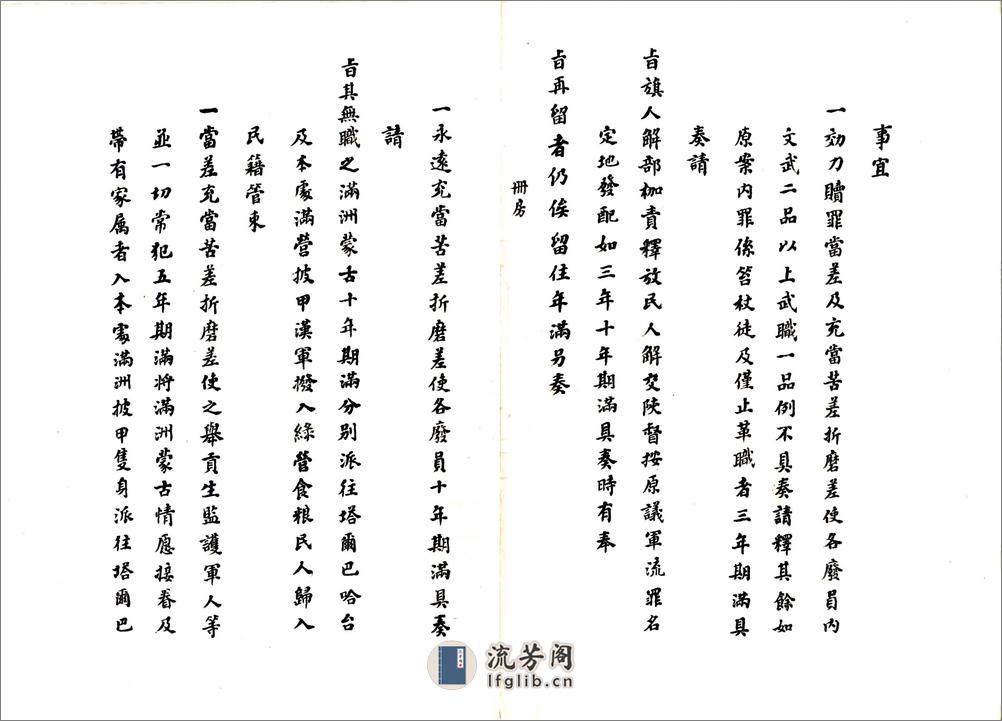 事宜
一効力贖罪當差及充當苦差折磨差使各廢員內
文武二品以上武職一品例不具奏請釋其餘如
原案內罪係笞杖徒及僅止革職者三年期滿具
奏請
旨旗人解部枷責釋放民人解交陝督按原議軍流罪名
定地發配如三年十年期滿具奏時有奉
旨再留者仍俟留住年滿另奏
冊房
一永遠充當苦差折磨差使各廢員十年期滿具奏
請
旨其無職之滿洲蒙古十年期滿分別派往塔爾巴哈台
及本處滿營披甲漢軍撥入綠營食粮民人歸入
民籍管束
一當差充當苦差折磨差使之舉貢生監護軍人等
並一切常犯五年期滿將滿洲蒙古情愿接眷及
帶有家屬者入本處滿洲披甲隻身派往塔爾巴
流芳阁
lfglib.cn